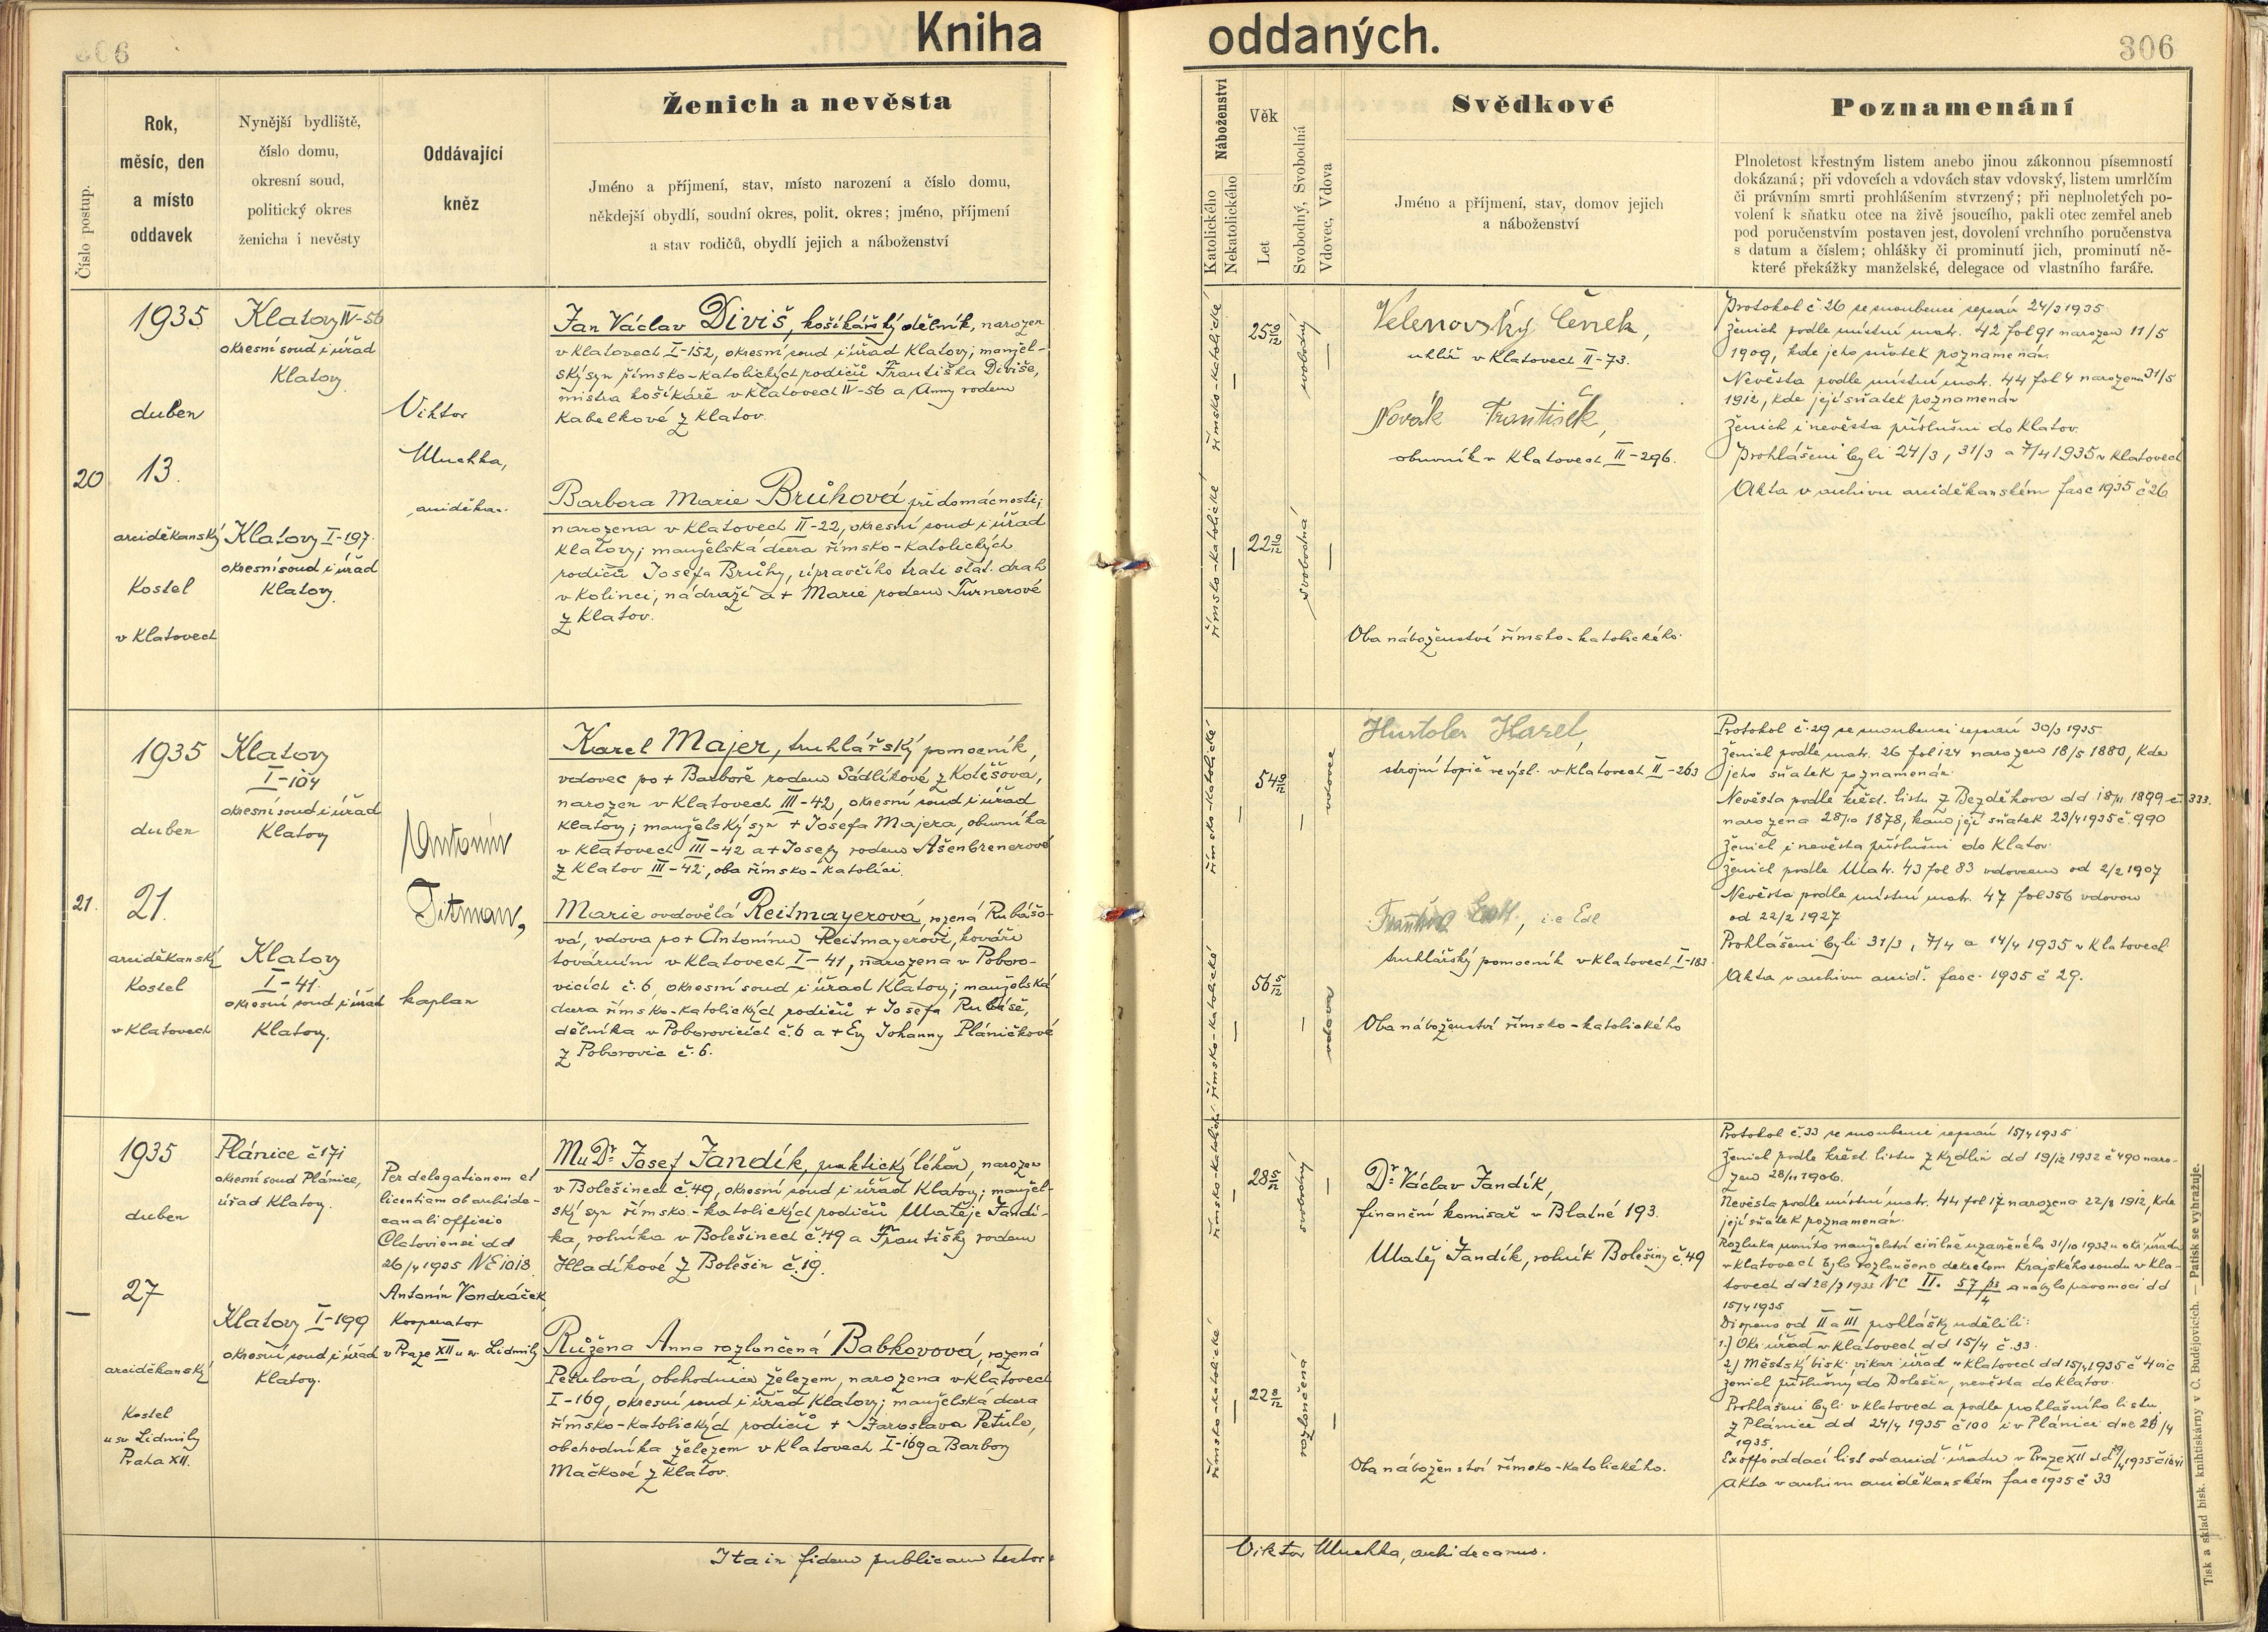 Kniha oddaných.
306
Číslo postup.
Rok,
měsíc, den
a místo
oddavek
Nynější bydliště,
číslo domu,
okresní soud,
politický okres
ženicha i nevěsty
Oddávající
kněz
Ženich a nevěsta
Jméno a příjmení, stav, místo narození a číslo domu,
někdejší obydlí, soudní okres, polit. okres; jméno, příjmení
a stav rodičů, obydlí jejich a náboženství
Náboženství
Katolického
Nekatolického
Věk
Let
Svobodný, Svobodná
Vdovec, Vdova
Svědkové
Jméno a příjmení, stav, domov jejich
a náboženství
Poznamenání
Plnoletost křestným listem anebo jinou zákonnou písemností
dokázaná; při vdovcích a vdovách stav vdovský, listem umrlčím
či právním smrti prohlášením stvrzený; při neplnoletých po-
volení k sňatku otce na živě jsoucího, pakli otec zemřel aneb
pod poručenstvím postaven jest, dovolení vrchního poručenstva
s datum a číslem; ohlášky či prominutí jich, prominutí ně-
které překážky manželské, delegace od vlastního faráře.
20
1935
duben
13.
arciděkanský
Kostel
v Klatovech
Klatovy IV-56
okresní soud i úřad
Klatovy.
Klatovy I-197.
okresní soud i úřad
Klatovy.
Viktor
Muchka,
arciděkan.
Jan Václav Diviš, košíkářský dělník, narozen
v Klatovech I-152, okresní soud i úřad Klatovy; manžel-
ský syn římsko-katolických rodičů Františka Diviše,
mistra košíkáře v Klatovech IV-56 a Anny rodem
Kabelkové z Klatov.
Barbora Marie Brůhová při domácnosti,
narozena v Klatovech II-22, okresní soud i úřad
Klatovy; manželská dcera římsko-katolických
rodičů Josefa Brůhy, správčího trati stát. drah
v Kolinci, nádraží a + Marie rodem Turnerové
z Klatov.
římsko-katolické
římsko-katolické
25 10/12
22 9/12
svobodný
svobodná
Velenovský Čeněk,
uhlíř v Klatovech II-73.
Novák František,
obuvník v Klatovech II-296.
Oba náboženství římsko-katolického.
Protokol č. 26 se snoubenci sepsán 24/3 1935
Ženich podle místní matr. 42 fol 91 narozen 11/5
1909, kde jeho sňatek poznamenán.
Nevěsta podle místní matr. 44 fol 4 narozena 31/5
1912, kde její sňatek poznamenán
Ženich i nevěsta příslušni do Klatov.
Prohlášeni byli 24/3, 31/3 a 7/4 1935 v Klatovech
Akta v archivu arciděkanském fasc 1935 č 26
21.
1935
duben
21.
arciděkanský
Kostel
v Klatovech
Klatovy
I-104
okresní soud i úřad
Klatovy
Klatovy
I-41.
okresní soud i úřad
Klatovy.
Antonín
Titman,
kaplan
Karel Majer, truhlářský pomocník,
vdovec po + Barboře rodem Sádlíkové z Kolešova,
narozen v Klatovech III-42, okresní soud i úřad
Klatovy; manželský syn + Josefa Majera, obuvníka
v Klatovech III-42 a + Josefy rodem Ašenbrenerové
z Klatov III-42, oba římsko-katolíci.
Marie ovdovělá Reitmayerová, rozená Rubášo-
vá, vdova po + Antonínu Reitmayerovi, kováři
továrním v Klatovech I-41, narozena v Poboro-
vicích č. 6, okresní soud i úřad Klatovy; manželská
dcera římsko-katolických rodičů + Josefa Rubáše,
dělníka v Poborovicích č. 6 a + Evy Johanny Pláničkové
z Poborovic č. 6.
římsko-katolické
římsko-katolické
56 5/12
vdovec
vdova
Karel,
strojní topič ve výsl. v Klatovech II-263
František
i.e Edl
truhlářský pomocník v Klatovech I-183
Oba náboženství římsko-katolického
Protokol č. 29 se snoubenci sepsán 30/3 1935
Ženich podle matr. 26 fol 124 narozen 18/5 1880, kde
jeho sňatek poznamenán
Nevěsta podle křest. listu z Bezděkova dd 18/11 1899 č. 333.
narozena 28/10 1878, kamo její sňatek 23/4 1935 č. 990
Ženich i nevěsta příslušni do Klatov.
Ženich podle Matr. 43 fol 83 vdovcem od 2/2 1907
Nevěsta podle místní matr. 47 fol 356 vdovou
od 22/2 1927
Prohlášeni byli 31/3, 7/4 a 14/4 1935 v Klatovech
Akta v archivu arciď. fasc. 1935 č 29.
1935
duben
27
arciděkanský
Kostel
u sv. Lidmily
Praha XII.
Plánice č 171
okresní soud Plánice,
úřad Klatovy.
Klatovy I-199
okresní soud i úřad
Klatovy.
Per delegationem et
licentiam ab archide-
canali officio
Clatoviensi dd
26/4 1935 NE 1018.
Antonín Vondráček,
Kooperator
v Praze XII u sv. Lidmily
MuDr. Josef Jandík, praktický lékař, narozen
v Bolešinech č 49, okresní soud i úřad Klatovy; manžel-
ský syn římsko-katolických rodičů Matěje Jandí-
ka, rolníka v Bolešinech č 49 a Františky rodem
Hladíkové z Bolešin č. 19.
Růžena Anna rozloučená Babkovová, rozená
Petulová, obchodnice železem, narozena v Klatovech
I-169, okresní soud i úřad Klatovy; manželská dcera
římsko-katolických rodičů + Jaroslava Petule,
obchodníka železem v Klatovech I-169 a Barbory
Mačkové z Klatov.
římsko-katolické
římsko-katolické
28 5/12
22 8/12
svobodný
rozloučená
Dr. Václav Jandík,
finanční komisař v Blatné 193.
Matěj Jandík, rolník Bolešiny č. 49
Oba náboženství římsko-katolického.
Protokol č. 33 se snoubenci sepsán 15/4 1935
Ženich podle křest. listu z Kydlin dd 19/12 1932 č 490 naro-
zen 28/11 1906.
Nevěsta podle místní matr. 44 fol 17 narozena 22/8 1912, kde
její sňatek poznamenán.
Rozluka prvního manželství civilně uzavřeného 31/10 1932 u okr. úřadu
v Klatovech bylo rozloučeno dekretem Krajského soudu v Kla-
tovech dd 28/7 1933 NC II. a nabylo pravomoci dd
15/4 1935
Dispens od II a III prohlášky udělili:
1.) Okr. úřad v Klatovech dd 15/4 č. 33.
2) Městský bisk. vikar. úřad v Klatovech dd 15/4 1935 č 4 vic
Ženich příslušný do Bolešin, nevěsta do Klatov.
Prohlášeni byli v Klatovech a podle prohlašního listu
z Plánice dd 24/4 1935 č 100 i v Plánici dne 28/4
1935.
Ex offo oddací list od arcid. úřadu v Praze XII
Akta v archivu arciděkanském fasc 1935 č 33
Ita in fidem publicam testor: Viktor Muchka, archidecanus.
Tisk a sklad bisk. knihtiskárny v Č. Budějovicích. — Patisk se vyhražuje.